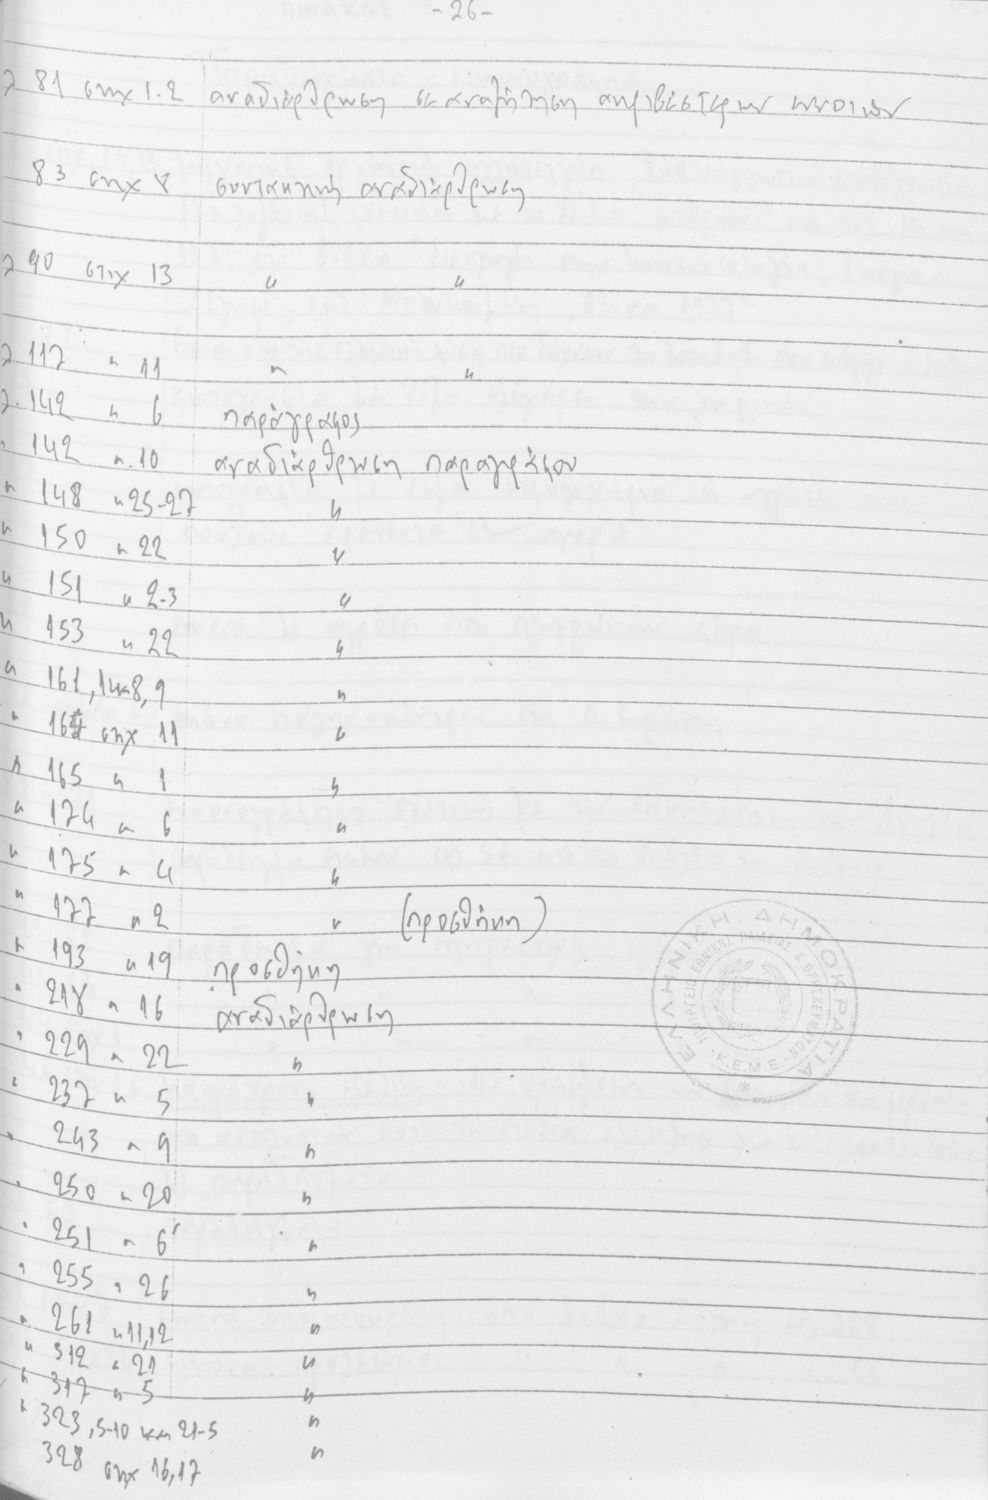 -26-
λ 81 στιχ 1-2 αναδιάρθρωση σε αναζήτηση ακριβέστερων εννοιών
83 στιχ 8 συντακτική αναδιάρθρωση
λ 90 στιχ 13 " "
λ 117 " 11 " "
λ 142 " 6 παράγραφος
" 142 ".10 αναδιάρθρωση παραγράφου
" 148 " 25-27 "
" 150 " 22 "
" 151 " 2-3 "
" 153 " 22 "
" 161, 8, 9 "
" στιχ 11 "
" 165 " 1 "
" 174 " 6 "
" 175 " 4 "
" 177 " 2 " (προσθήκη)
" 193 " 19 προσθήκη
" 218 " 16 αναδιάρθρωση
" 229 " 22 "
" 237 " 5 "
" 243 " 9 "
" 250 " 20 "
" 251 " 6 "
" 255 " 26 "
" 261 " 11,12 "
" 312 " 21 "
" 317 " 5 "
" 323, 5-10 και 21-5 "
328 στιχ 16,17 "
ΕΛΛΗΝΙΚΗ ΔΗΜΟΚΡΑΤΙΑ
ΥΠΟΥΡΓΕΙΟ ΕΘΝΙΚΗΣ ΠΑΙΔΕΙΑΣ & ΘΡΗΣΚΕΥΜΑΤΩΝ
Κ.Ε.Μ.Ε.